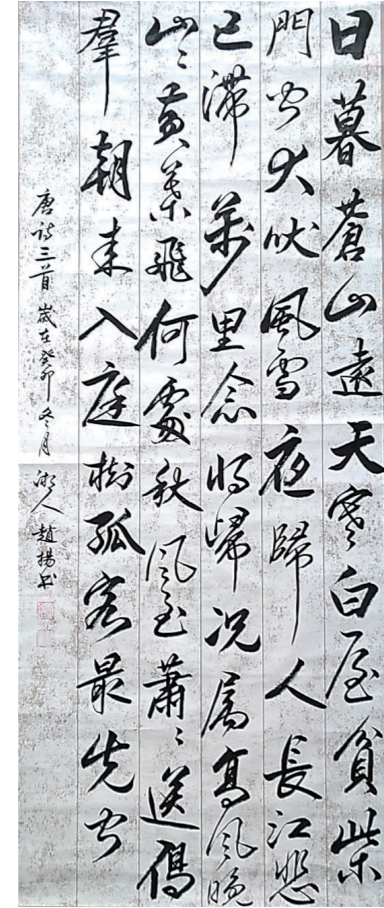 日暮蒼山遠天寒白屋貧柴
門聞犬吠風雪夜歸人長江悲
已滯萬里念將歸况屬高風晚
山〻黃葉飛何處秋風至蕭〻送鴈
羣朝来入庭樹孤客最先聞
唐詩三首歲在癸卯冬月人趙揚書